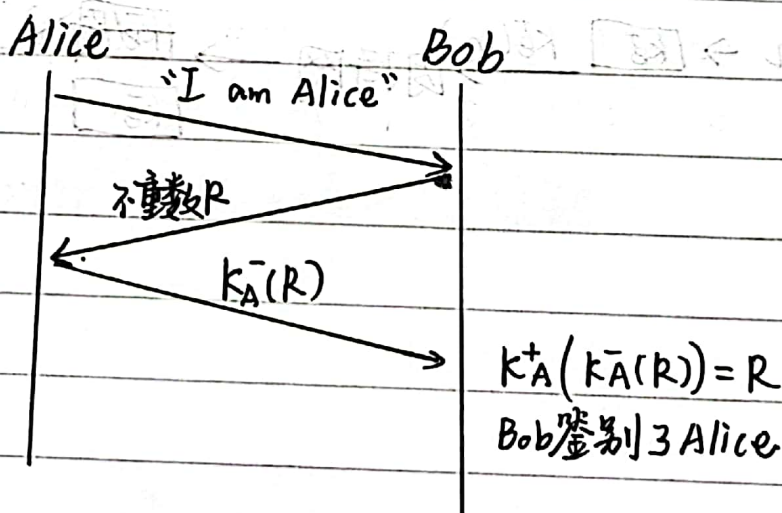 Alice
Bob
"I am Alice"
不重数R
K_A^-(R)
K_A^+(K_A^-(R)) = R
Bob鉴别了Alice